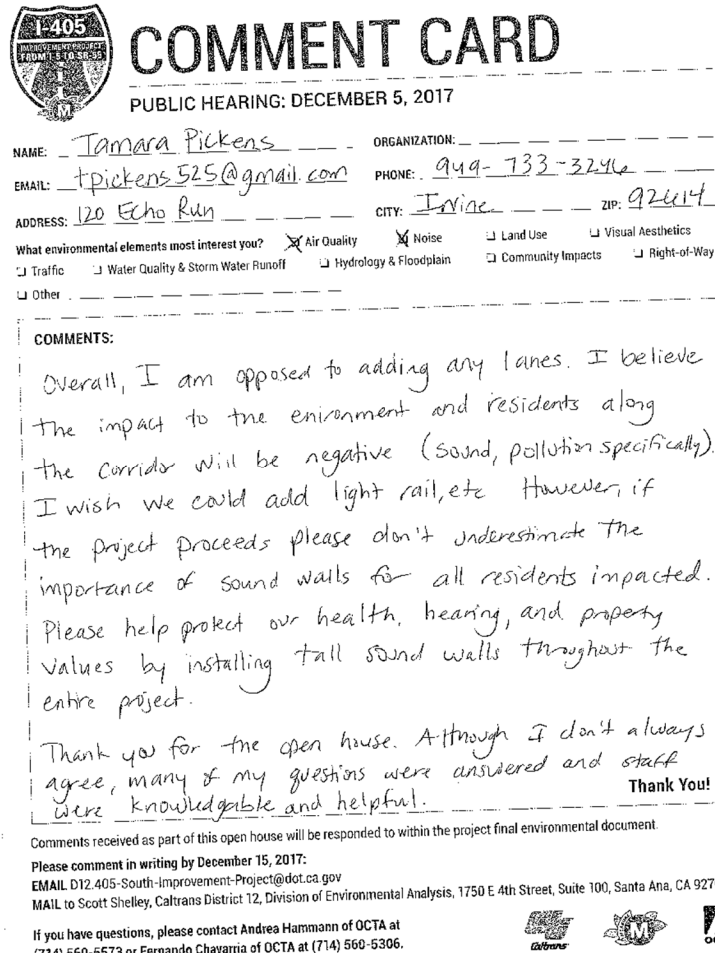 I-405
IMPROVEMENT PROJECT
FROM I-5 TO SR-55
COMMENT CARD
PUBLIC HEARING: DECEMBER 5, 2017
NAME: Tamara Pickens ORGANIZATION:
EMAIL: tpickens525@gmail.com PHONE: 949-733-3246
ADDRESS: 120 Echo Run CITY: Irvine ZIP: 92614
What environmental elements most interest you? Air Quality Noise Land Use Visual Aesthetics
Traffic Water Quality & Storm Water Runoff Hydrology & Floodplain Community Impacts Right-of-Way
Other
COMMENTS:
Overall, I am opposed to adding any lanes. I believe
the impact to the enironment and residents along
the corridor will be negative (sound, pollution specifically).
I wish we could add light rail, etc However, if
the project proceeds please don't underestimate the
importance of sound walls for all residents impacted.
Please help protect our health, hearing, and property
values by installing tall sound walls throughout the
entire project.
Thank you for the open house. Although I don't always
agree, many of my questions were answered and staff
were knowledgable and helpful.
Thank You!
Comments received as part of this open house will be responded to within the project final environmental document.
Please comment in writing by December 15, 2017:
EMAIL D12.405-South-Improvement-Project@dot.ca.gov
MAIL to Scott Shelley, Caltrans District 12, Division of Environmental Analysis, 1750 E 4th Street, Suite 100, Santa Ana, CA 927
If you have questions, please contact Andrea Hammann of OCTA at
(714) 560-5573 or Fernando Chavarria of OCTA at (714) 560-5306.
Caltrans
M